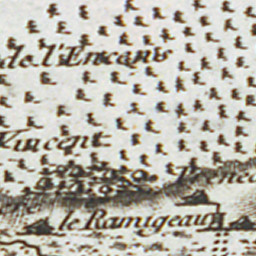 de l'Encans
Vincent
le Ramigeau